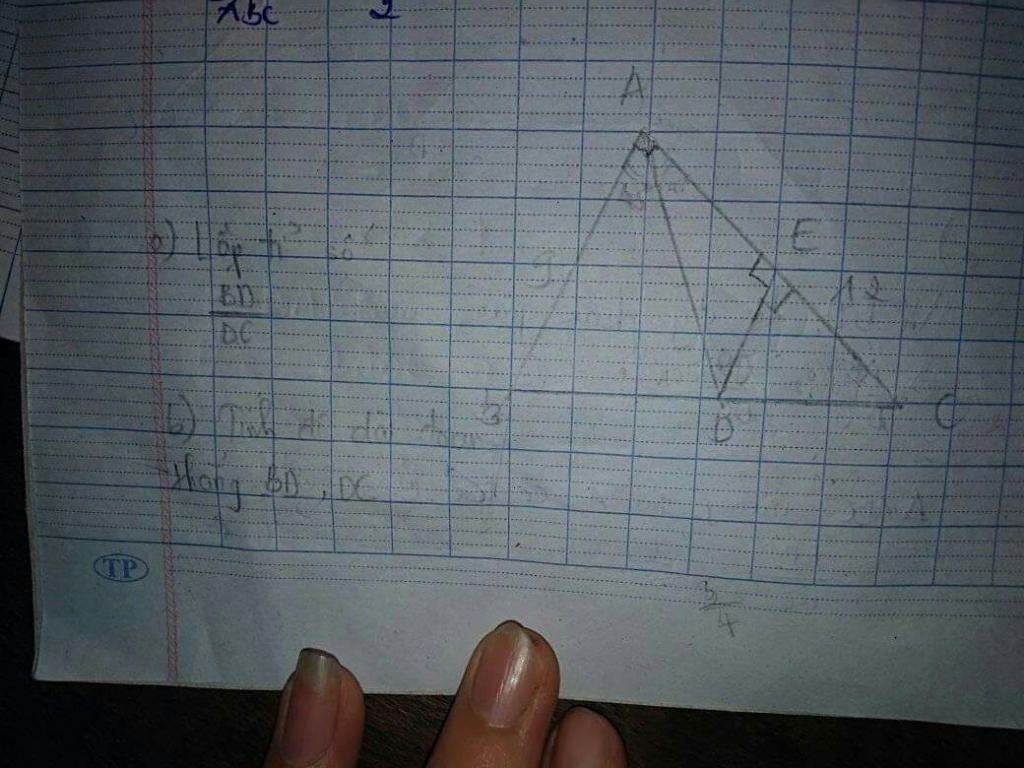 ABC 2
A
a) Lập tỉ số
BD
DC
E
9
12
B
D
C
b) Tính độ dài đoạn
thẳng BD, DC
TP
3
4